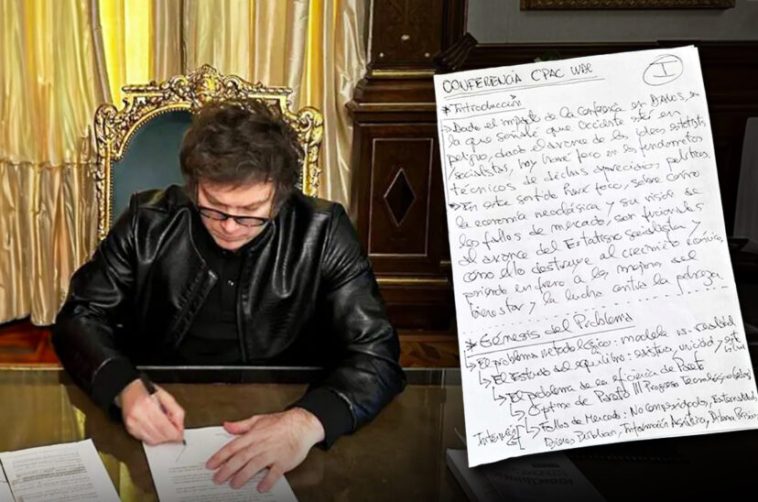 CONFERENCIA CPAC
I
* Introducción
Dado el impacto de la Conferencia en DAVOS, en
la que señalé que Occidente está en
peligro, dado el avance de las ideas
socialistas, hoy haré foco en los fundamentos
técnicos de dichas apreciaciones políticas.
En este sentido haré foco, sobre como
la economía neoclásica y su visión de
los fallos de mercado, son funcionales
al avance del Estatismo socialista y
como ello destruye al crecimiento económico,
poniendo en freno a las mejoras del
bienestar y la lucha contra la pobreza
* Génesis del Problema
El problema metodológico: modelo vs. realidad
El Estudio del equilibrio: existencia, unicidad y
El problema de la eficiencia de Pareto
Optimo de Pareto III Progreso Tecnológico
Fallos de Mercado: No
Bienes Públicos, Información Asimétrica, Dilema